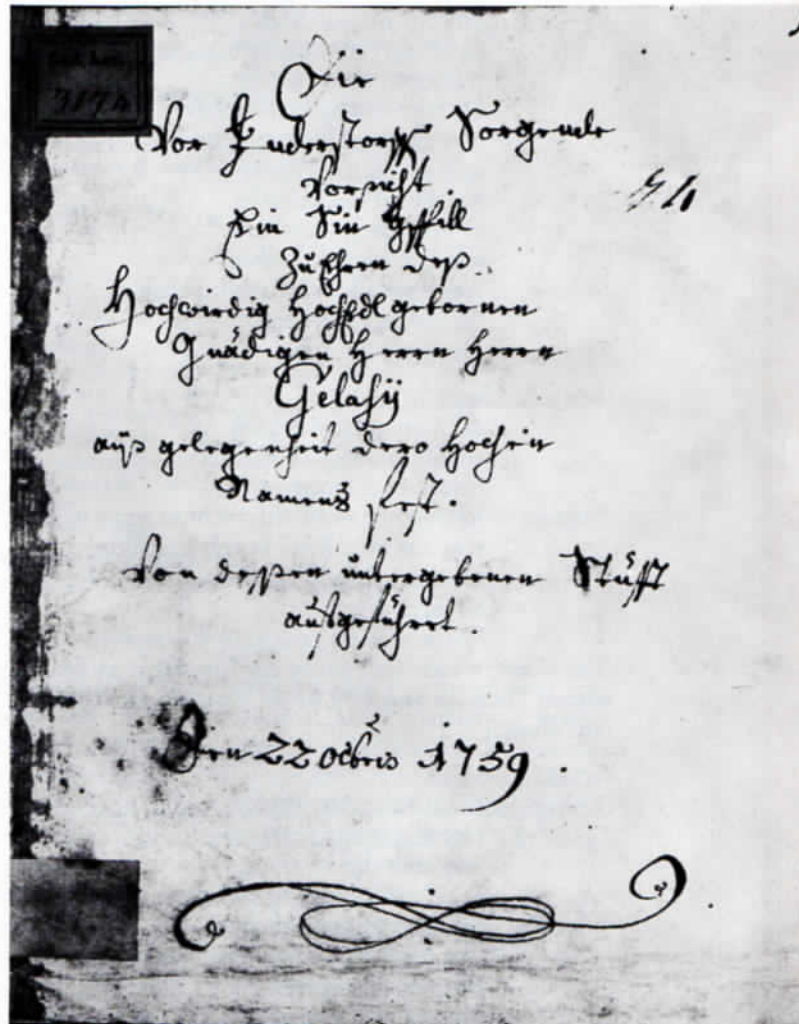 Die
Vor Inderstorff Sorgende
Vorsicht
Ein Sin Gspill
Zu Ehren deß
Hochwirdig HochEdl gebornen
Gnädigen Herrn Herrn
Gelasÿ
auß gelegenheit dero Hochen
Namens fest.
Von deßen untergebenen Stüfft
aufgeführt.
Den 22 octbris 1759.